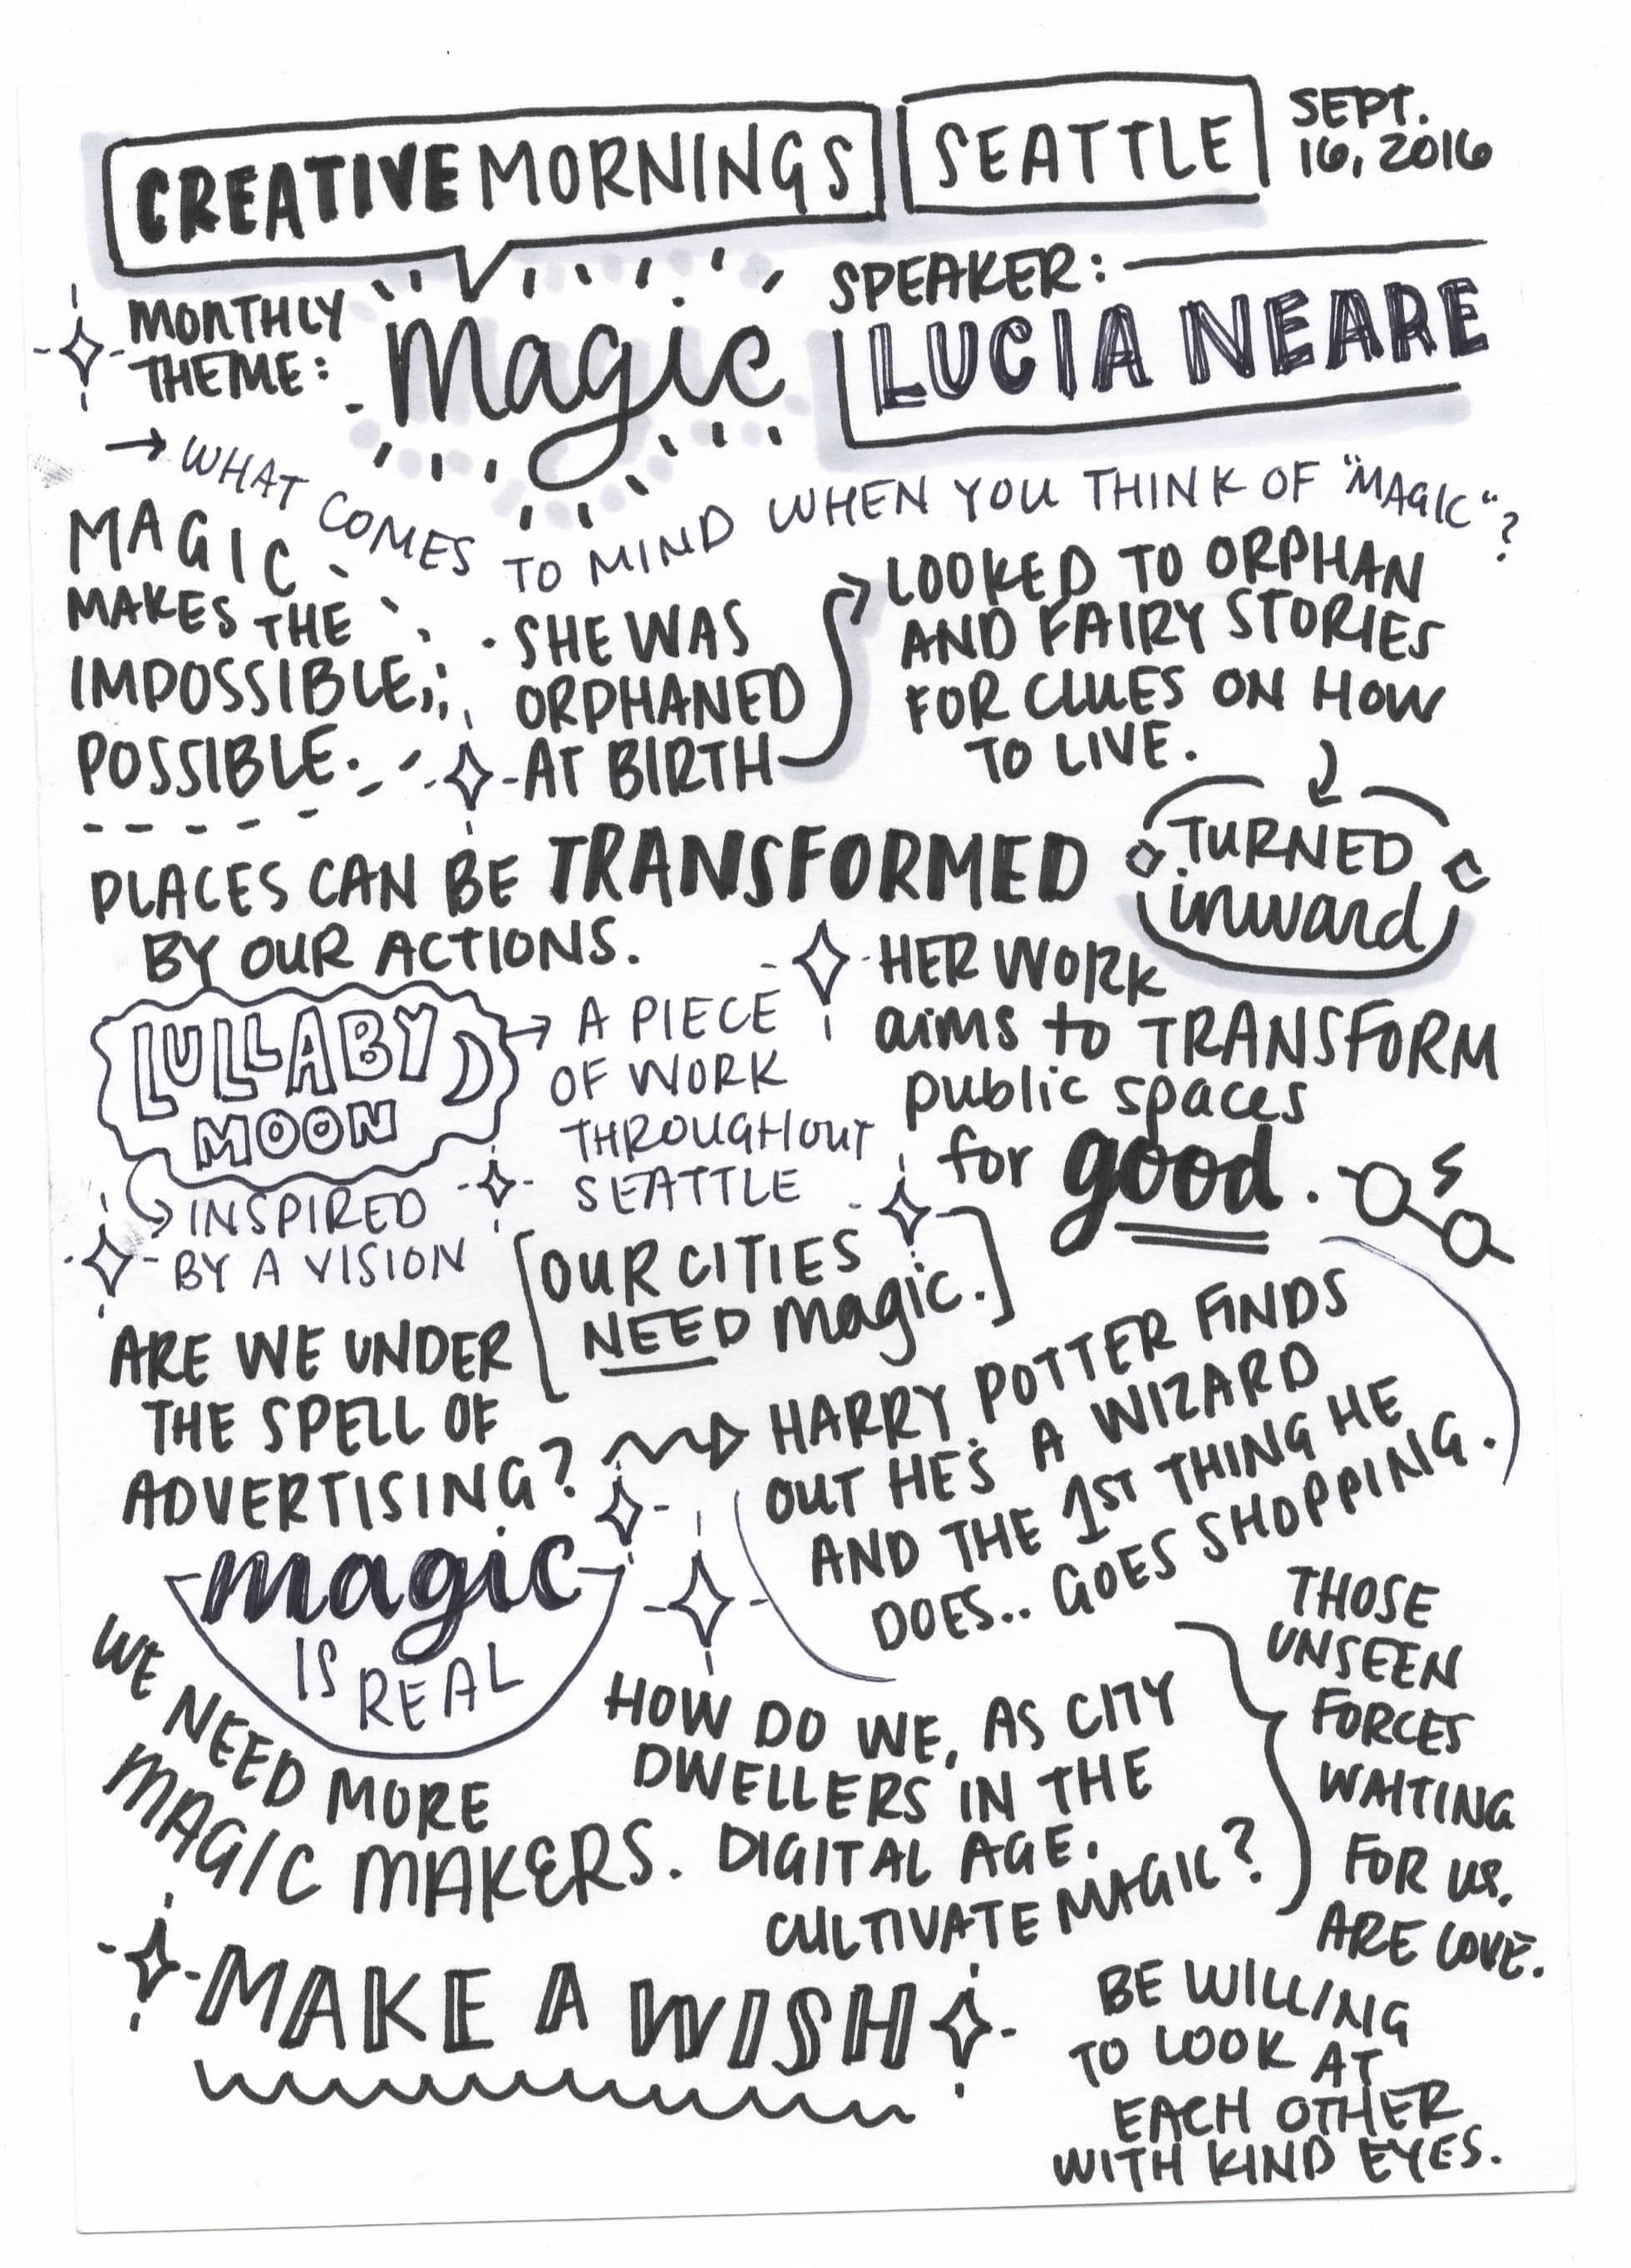 CREATIVEMORNINGS
SEATTLE
SEPT.
16, 2016
MONTHLY
THEME:
Magic
SPEAKER:
LUCIA NEARE
→ WHAT COMES TO MIND WHEN YOU THINK OF "MAGIC"?
MAGIC
MAKES THE
IMPOSSIBLE,
POSSIBLE.
SHE WAS
ORPHANED
AT BIRTH
LOOKED TO ORPHAN
AND FAIRY STORIES
FOR CLUES ON HOW
TO LIVE.
TURNED
inward
PLACES CAN BE TRANSFORMED
BY OUR ACTIONS.
HER WORK
aims to TRANSFORM
public spaces
for good.
LULLABY
MOON
→ A PIECE
OF WORK
THROUGHOUT
SEATTLE
INSPIRED
BY A VISION
[OUR CITIES
NEED magic.]
ARE WE UNDER
THE SPELL OF
ADVERTISING?
HARRY POTTER FINDS
OUT HE'S A WIZARD
AND THE 1ST THING HE
DOES.. GOES SHOPPING.
magic
IS REAL
WE NEED MORE
MAGIC MAKERS.
HOW DO WE, AS CITY
DWELLERS IN THE
DIGITAL AGE,
CULTIVATE MAGIC?
THOSE
UNSEEN
FORCES
WAITING
FOR US,
ARE LOVE.
MAKE A WISH
BE WILLING
TO LOOK AT
EACH OTHER
WITH KIND EYES.